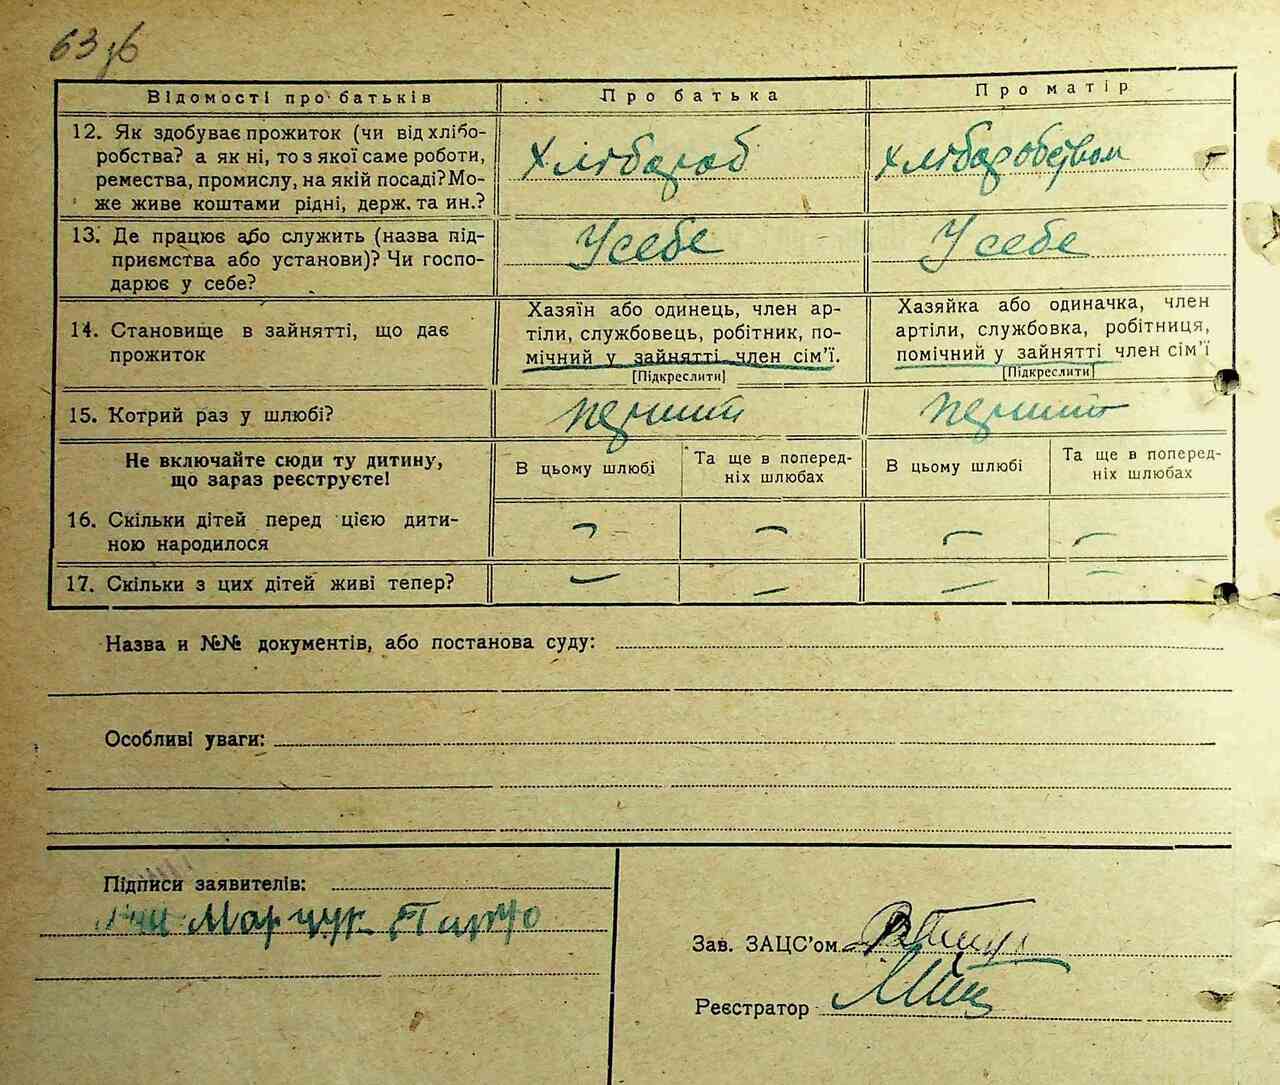 63 зв
Відомості про батьків
Про батька
Про матір
12. Як здобуває прожиток (чи від хлібо-
робства? а як ні, то з якої саме роботи,
ремества, промислу, на якій посаді? Мо-
же живе коштами рідні, держ. та ин.?
Хлібороб
Хліборобством
13. Де працює або служить (назва під-
приємства або установи)? Чи госпо-
дарює у себе?
У себе
У себе
14. Становище в зайнятті, що дає
прожиток
Хазяїн або одинець, член ар-
тіли, службовець, робітник, по-
мічний у зайнятті член сім’ї.
[Підкреслити]
Хазяйка або одиначка, член
артіли, службовка, робітниця,
помічний у зайнятті член сім’ї
[Підкреслити]
15. Котрий раз у шлюбі?
перший
перший
Не включайте сюди ту дитину,
що зараз реєструєте!
В цьому шлюбі
Та ще в поперед-
ніх шлюбах
В цьому шлюбі
Та ще в поперед-
ніх шлюбах
16. Скільки дітей перед цією дити-
ною народилося
– – – –
17. Скільки з цих дітей живі тепер?
– – – –
Назва и №№ документів, або постанова суду:
Особливі уваги:
Підписи заявителів:
Марчук
Зав. ЗАЦС’ом
Реєстратор